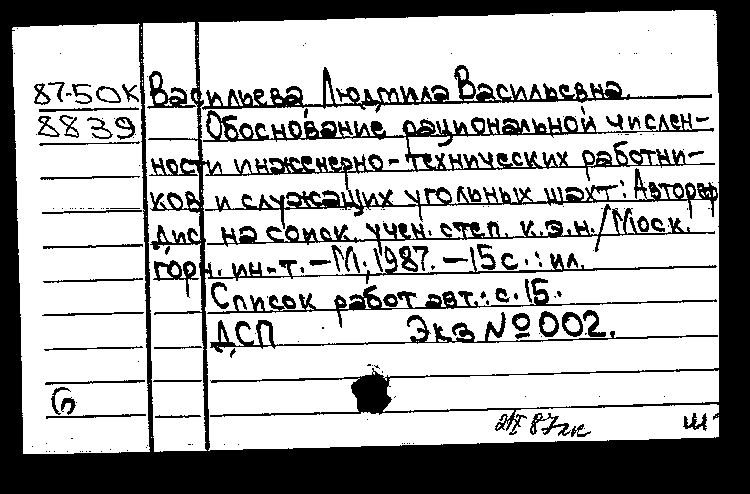 87-50К Васильева, Людмила Васильевна.
8839 Обоснование рациональной числен-
ности инженерно-технических работни-
ков и служащих угольных шахт: Автореф
дис. на соиск. учен. степ. к.э.н./Моск.
горн. ин-т. - М., 1987. - 15 с.: ил.
Список работ авт.: с. 15.
ДСП Экз №002.
6
87
Ш